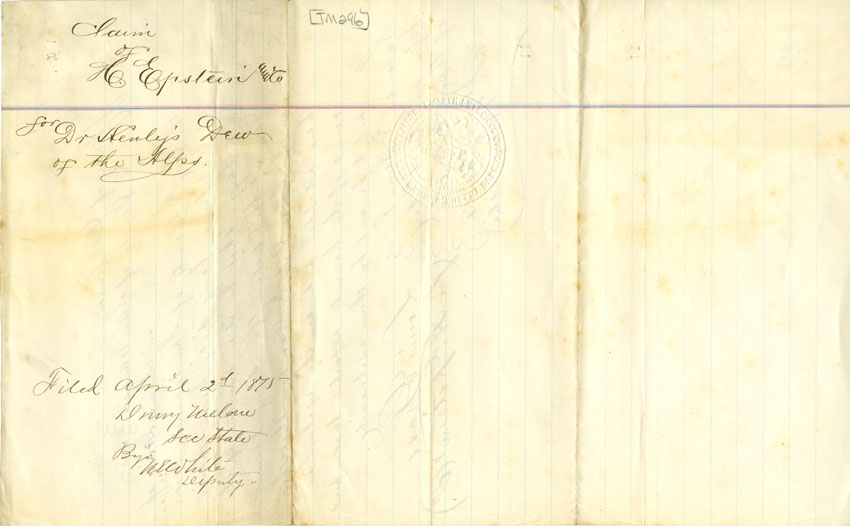 [TM296]
Claim
of
H. Epstein & Co
for Dr Henley's Dew
of the Alps.
Filed April 2d 1875
Drury Melone
Sec State
By
Deputy